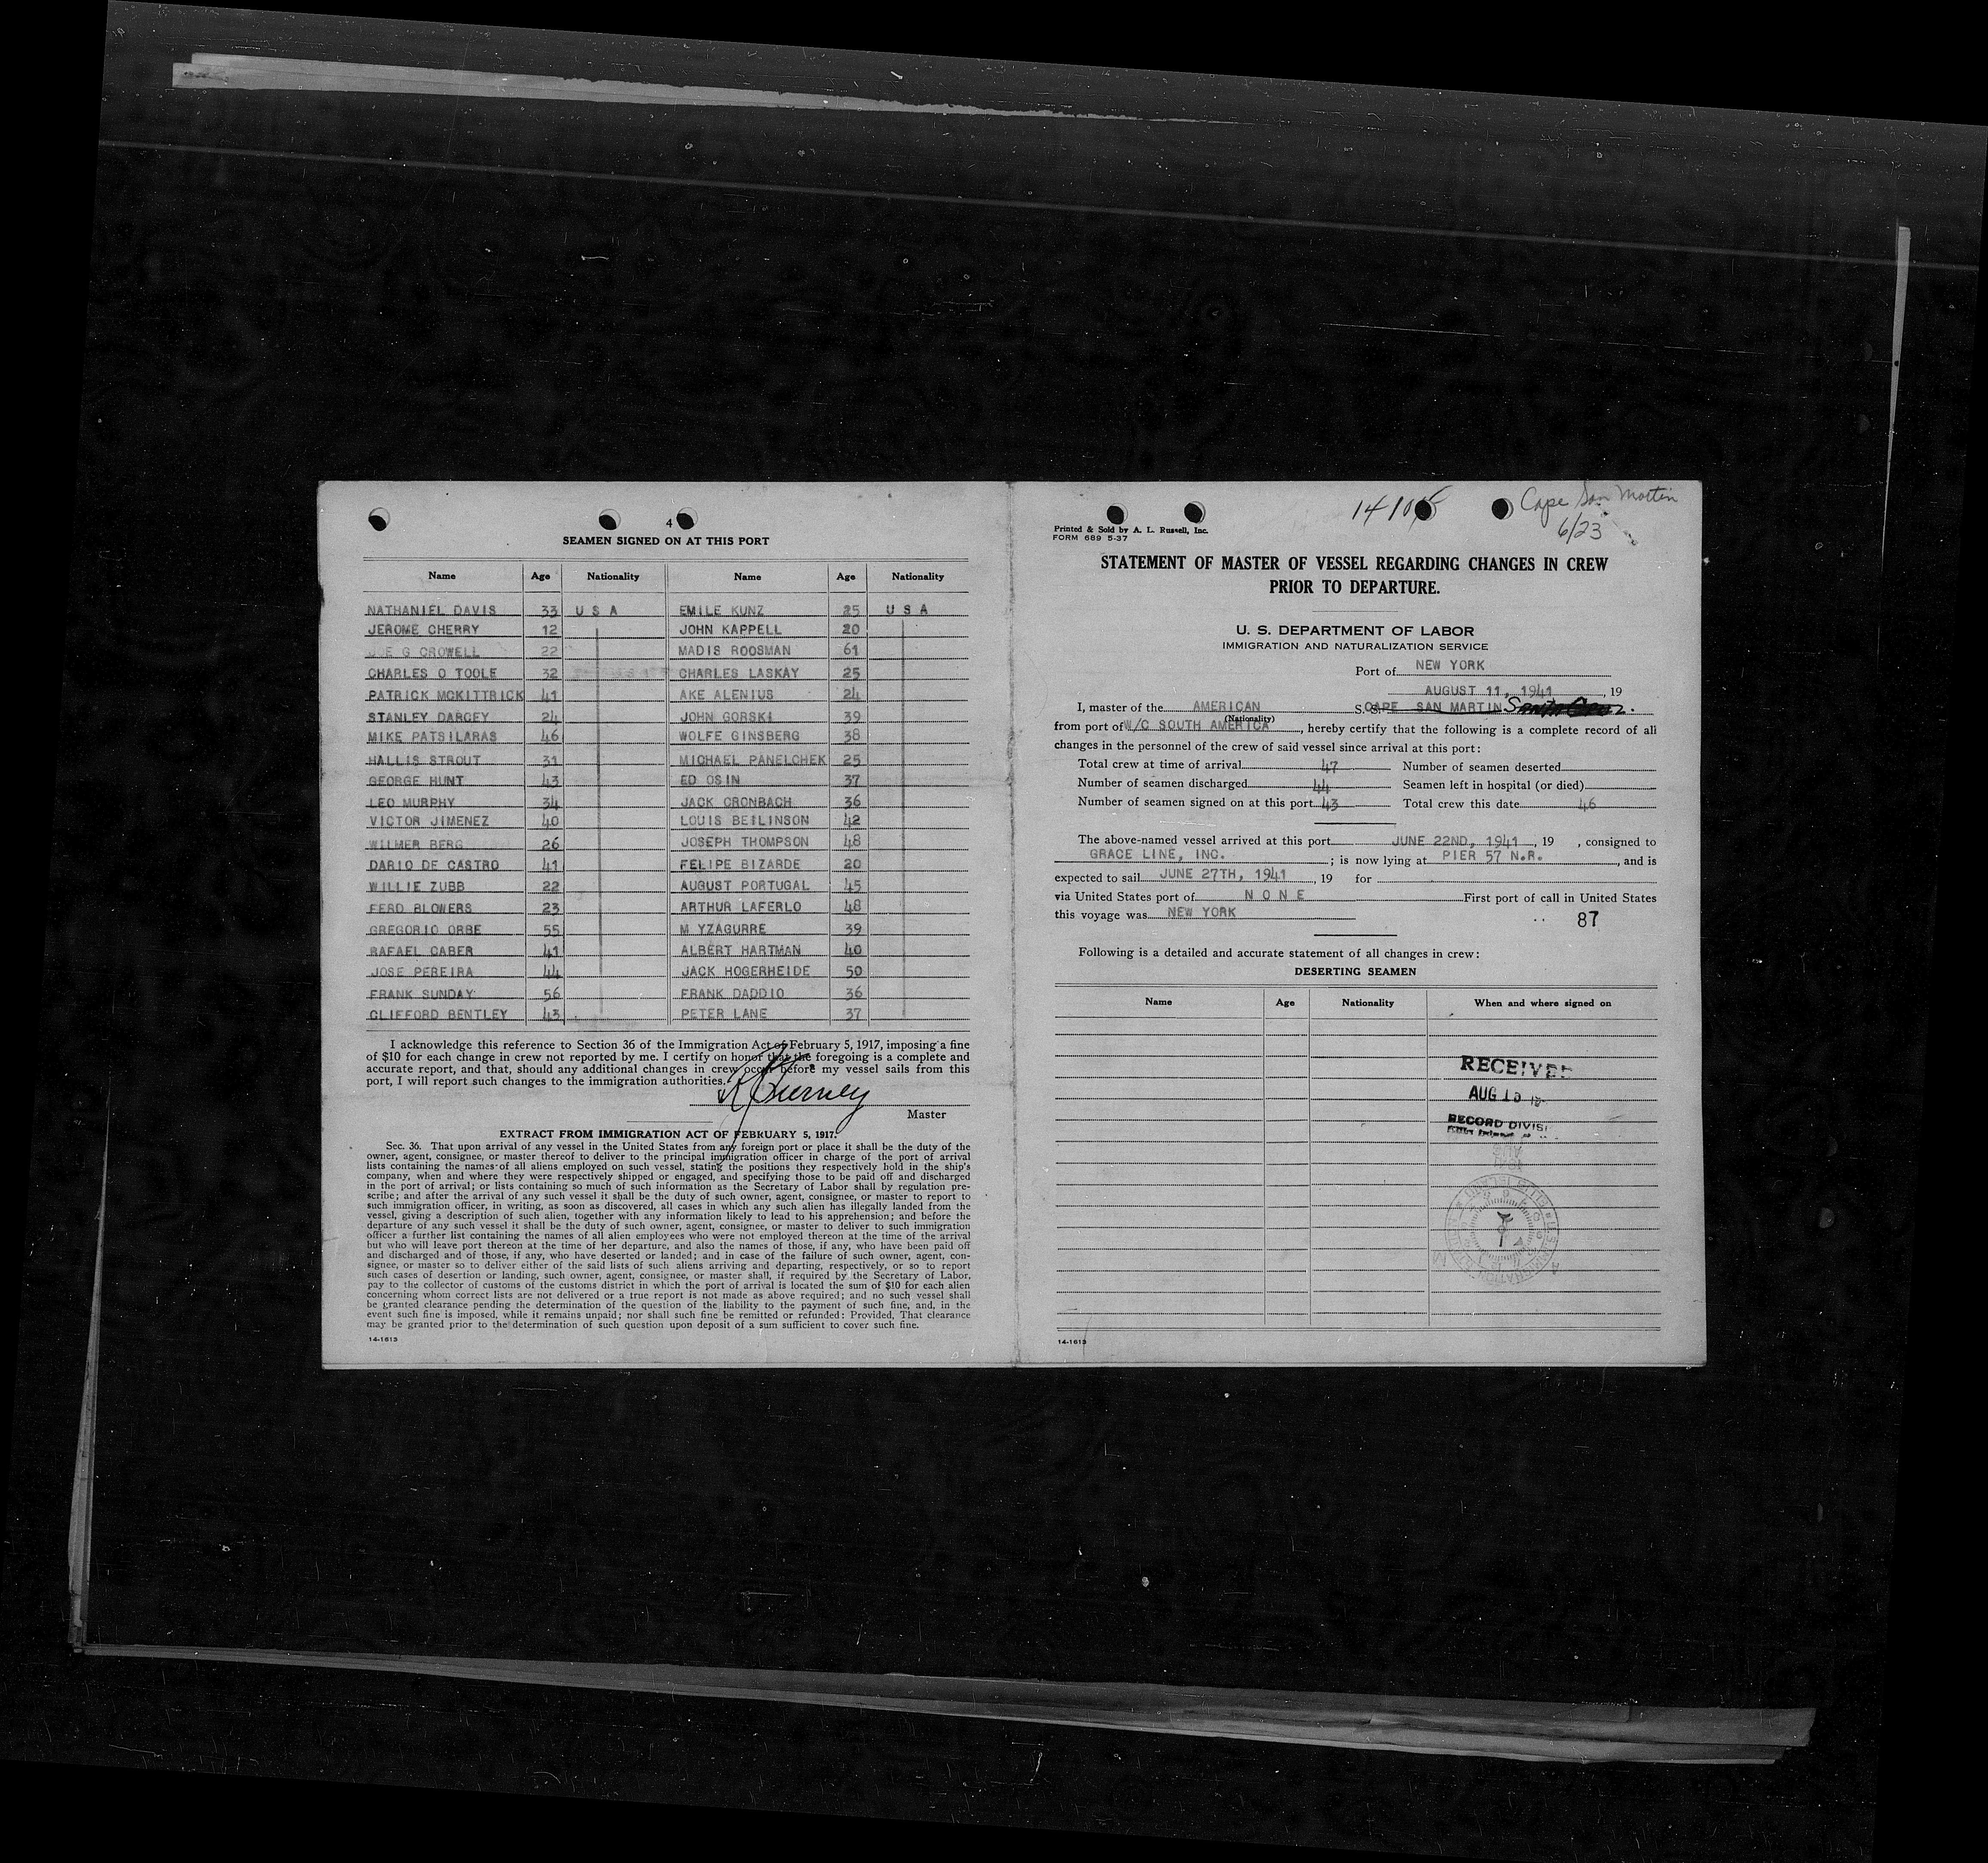 4
SEAMEN SIGNED ON AT THIS PORT
Name Age Nationality Name Age Nationality
NATHANIEL DAVIS 33 U S A EMILE KUNZ 25 U S A
JEROME CHERRY 12 JOHN KAPPELL 20
JOE G CROWELL 22 MADIS ROOSMAN 61
CHARLES O TOOLE 32 CHARLES LASKAY 25
PATRICK MCKITTRICK 41 AKE ALENIUS 24
STANLEY DARCEY 24 JOHN GORSKI 39
MIKE PATSILARAS 46 WOLFE GINSBERG 38
HALLIS STROUT 31 MICHAEL PANELCHEK 25
GEORGE HUNT 43 ED OSIN 37
LEO MURPHY 34 JACK CRONBACH 36
VICTOR JIMENEZ 40 LOUIS BEILINSON 42
WILMER BERG 26 JOSEPH THOMPSON 48
DARIO DE CASTRO 41 FELIPE BIZARDE 20
WILLIE ZUBB 22 AUGUST PORTUGAL 45
FERD BLOWERS 23 ARTHUR LAFERLO 48
GREGORIO ORBE 55 M YZAGURRE 39
RAFAEL CABER 41 ALBERT HARTMAN 40
JOSE PEREIRA 44 JACK HOGERHEIDE 50
FRANK SUNDAY 56 FRANK DADDIO 36
CLIFFORD BENTLEY 43 PETER LANE 37
I acknowledge this reference to Section 36 of the Immigration Act of February 5, 1917, imposing a fine
of $10 for each change in crew not reported by me. I certify on honor that the foregoing is a complete and
accurate report, and that, should any additional changes in crew occur before my vessel sails from this
port, I will report such changes to the immigration authorities.
Master
EXTRACT FROM IMMIGRATION ACT OF FEBRUARY 5, 1917.
Sec. 36. That upon arrival of any vessel in the United States from any foreign port or place it shall be the duty of the
owner, agent, consignee, or master thereof to deliver to the principal immigration officer in charge of the port of arrival
lists containing the names of all aliens employed on such vessel, stating the positions they respectively hold in the ship's
company, when and where they were respectively shipped or engaged, and specifying those to be paid off and discharged
in the port of arrival; or lists containing so much of such information as the Secretary of Labor shall by regulation pre-
scribe; and after the arrival of any such vessel it shall be the duty of such owner, agent, consignee, or master to report to
such immigration officer, in writing, as soon as discovered, all cases in which any such alien has illegally landed from the
vessel, giving a description of such alien, together with any information likely to lead to his apprehension; and before the
departure of any such vessel it shall be the duty of such owner, agent, consignee, or master to deliver to such immigration
officer a further list containing the names of all alien employees who were not employed thereon at the time of the arrival
but who will leave port thereon at the time of her departure, and also the names of those, if any, who have been paid off
and discharged and of those, if any, who have deserted or landed; and in case of the failure of such owner, agent, con-
signee, or master so to deliver either of the said lists of such aliens arriving and departing, respectively, or so to report
such cases of desertion or landing, such owner, agent, consignee, or master shall, if required by the Secretary of Labor,
pay to the collector of customs of the customs district in which the port of arrival is located the sum of $10 for each alien
concerning whom correct lists are not delivered or a true report is not made as above required; and no such vessel shall
be granted clearance pending the determination of the question of the liability to the payment of such fine, and, in the
event such fine is imposed, while it remains unpaid; nor shall such fine be remitted or refunded: Provided, That clearance
may be granted prior to the determination of such question upon deposit of a sum sufficient to cover such fine.
14-1613
Cape San Martin
6/23
Printed & Sold by A. L. Russell, Inc.
FORM 689 5-37
STATEMENT OF MASTER OF VESSEL REGARDING CHANGES IN CREW
PRIOR TO DEPARTURE.
U. S. DEPARTMENT OF LABOR
IMMIGRATION AND NATURALIZATION SERVICE
Port of NEW YORK
AUGUST 11, 1941, 19
I, master of the AMERICAN S. S. CAPE SAN MARTIN
(Nationality)
from port of W/C SOUTH AMERICA, hereby certify that the following is a complete record of all
changes in the personnel of the crew of said vessel since arrival at this port:
Total crew at time of arrival 47 Number of seamen deserted
Number of seamen discharged 44 Seamen left in hospital (or died)
Number of seamen signed on at this port 43 Total crew this date 46
The above-named vessel arrived at this port JUNE 22ND, 1941, 19 , consigned to
GRACE LINE, INC. ; is now lying at PIER 57 N.R. , and is
expected to sail JUNE 27TH, 1941, 19 for
via United States port of N O N E First port of call in United States
this voyage was NEW YORK
87
Following is a detailed and accurate statement of all changes in crew:
DESERTING SEAMEN
Name Age Nationality When and where signed on
RECEIVED
AUG
RECORD
14-1613